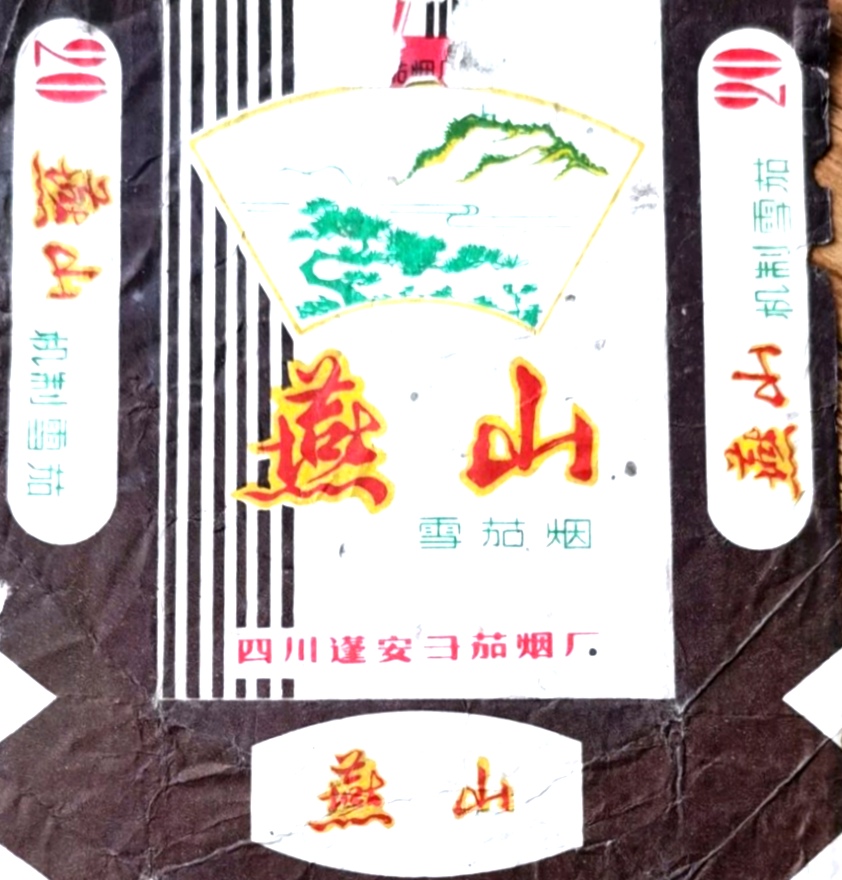 茄烟厂
20 燕山 机制雪茄
燕山
雪茄烟
四川蓬安彐茄烟厂
燕山 机制雪茄 20
燕山